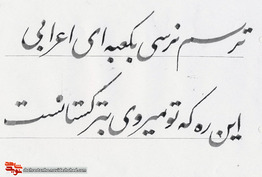 ترسم نرسی بکعبه ای اعرابی
این ره که تو میروی بترکستانست